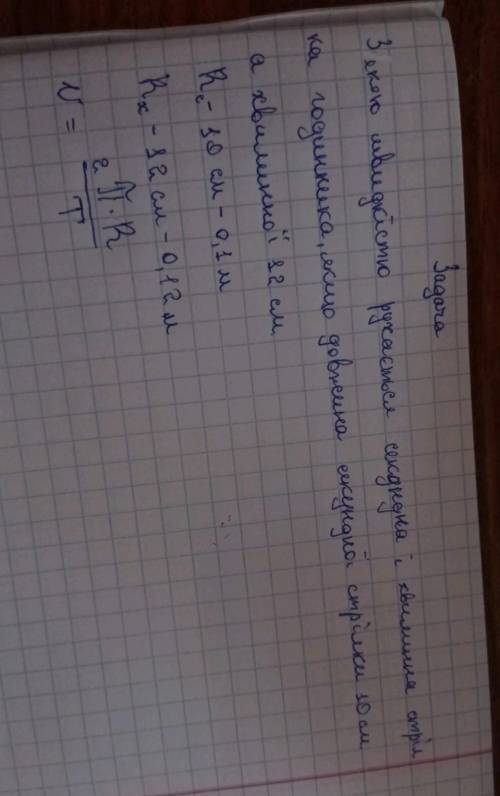 Задача
З якою швидкістю рухається секднда і хвилинна стріл
ка годинника, якщо довжина секундної стрілки 10 см
а хвилинної 12 см
Rс - 10 см - 0,1 м
Rх - 12 см - 0,12 м
υ = 2 П · R / T